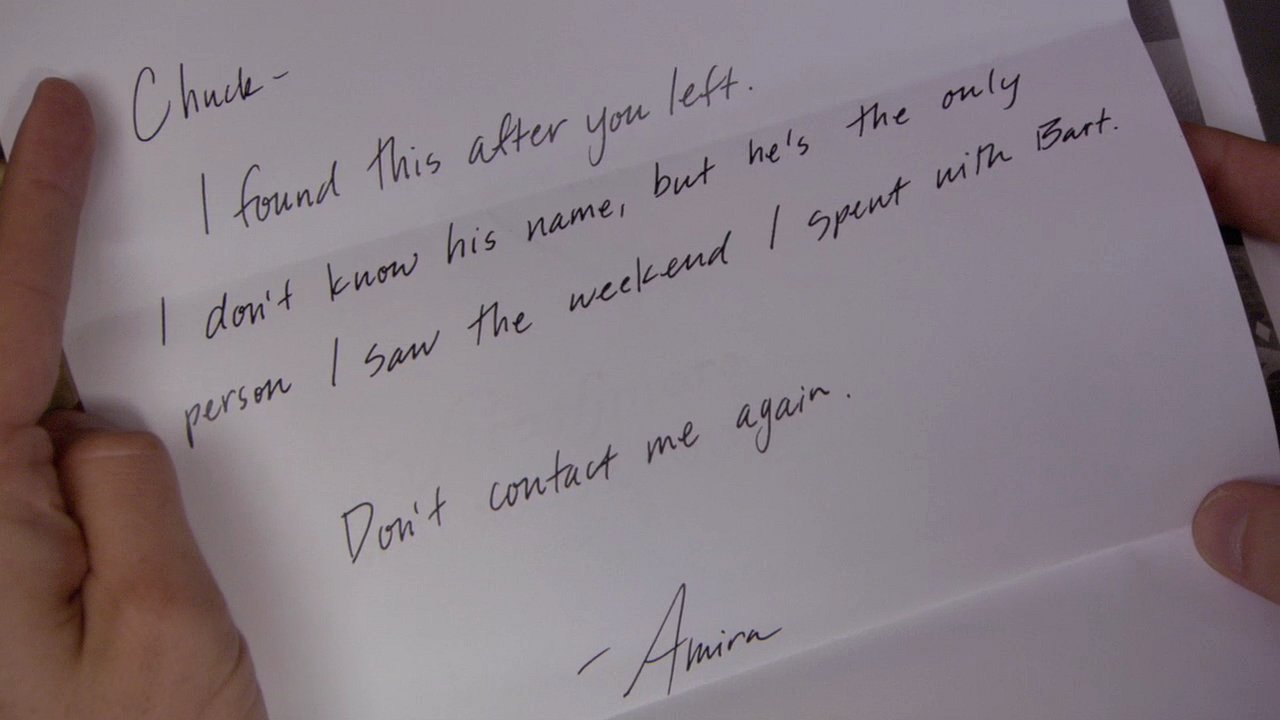 Chuck-
I found this after you left.
I don't know his name, but he's the only
person I saw the weekend I spent with Bart.
Don't contact me again.
- Amira